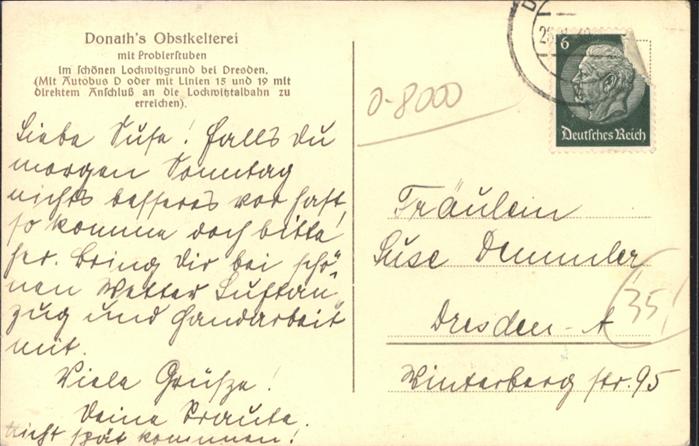 Donath's Obstkelterei
mit Probierstuben
im schönen Lockwitzgrund bei Dresden.
(Mit Autobus D oder mit Linien 15 und 19 mit
direktem Anschluß an die Lockwitztalbahn zu
erreichen).
Liebe Suse! Falls du
morgen Sonntag
nichts besseres vor hast,
so komme doch bitte
her. Bring dir bei schö-
nen Wetter Luftan-
zug und Handarbeit
mit.
Viele Grüße!
Deine Traute.
Nicht spät kommen!
6
Deutsches Reich
D-8000
Fräulein
Suse Demmler
Dresden-A
35!
Winterberg str. 95